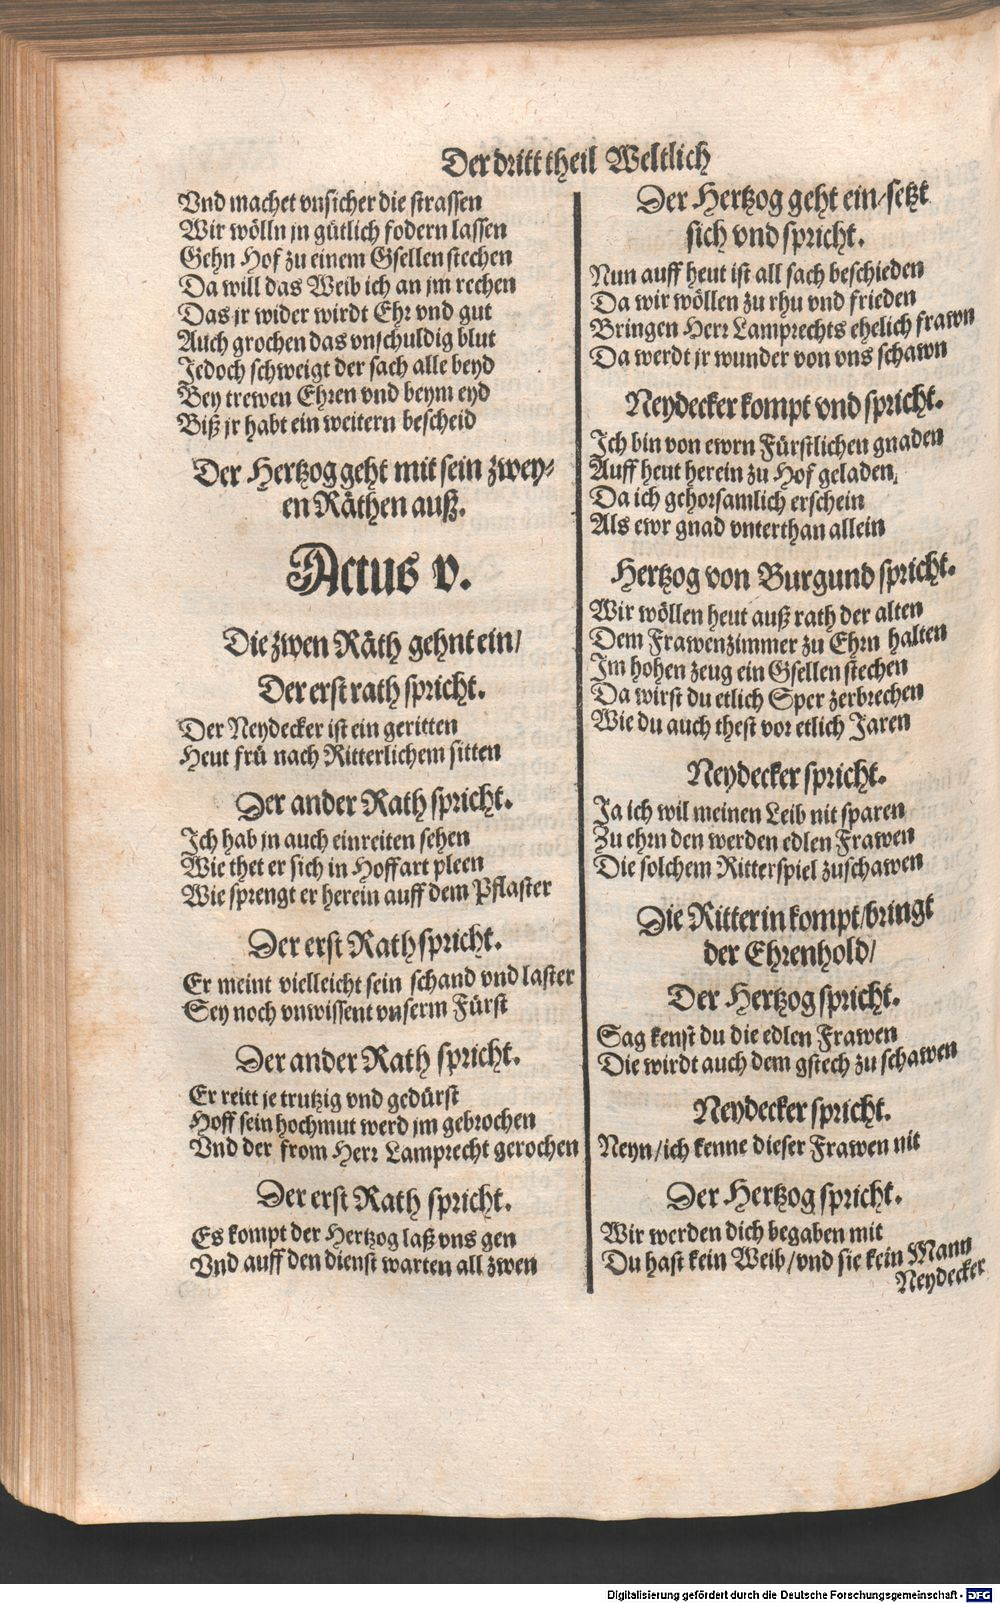 Der dritt theil Weltlich
Vnd machet vnsicher die strassen
Wir wölln jn gütlich fodern lassen
Gehn Hof zu einem Gsellen stechen
Da will das Weib ich an jm rechen
Das jr wider wirdt Ehr vnd gut
Auch grochen das vnschuldig blut
Jedoch schweigt der sach alle beyd
Bey trewen Ehren vnd beym eyd
Biß jr habt ein weitern bescheid
Der Hertzog geht mit sein zwey-
en Räthen auß.
Actus v.
Die zwen Räth gehnt ein/
Der erst rath spricht.
Der Neydecker ist ein geritten
Heut frü nach Ritterlichem sitten
Der ander Rath spricht.
Ich hab jn auch einreiten sehen
Wie thet er sich in Hoffart pleen
Wie sprengt er herein auff dem Pflaster
Der erst Rath spricht.
Er meint vielleicht sein schand vnd laster
Sey noch vnwissent vnserm Fürst
Der ander Rath spricht.
Er reitt je trutzig vnd gedürst
Hoff sein hochmut werd jm gebrochen
Vnd der from Herr Lamprecht gerochen
Der erst Rath spricht.
Es kompt der Hertzog laß vns gen
Vnd auff den dienst warten all zwen
Der Hertzog geht ein/setzt
sich vnd spricht.
Nun auff heut ist all sach beschieden
Da wir wöllen zu rhu vnd frieden
Bringen Herr Lamprechts ehelich frawn
Da werdt jr wunder von vns schawn
Neydecker kompt vnd spricht.
Ich bin von ewrn Fürstlichen gnaden
Auff heut herein zu Hof geladen,
Da ich gehorsamlich erschein
Als ewr gnad vnterthan allein
Hertzog von Burgund spricht.
Wir wöllen heut auß rath der alten
Dem Frawenzimmer zu Ehrn halten
Im hohen zeug ein Gsellen stechen
Da wirst du etlich Sper zerbrechen
Wie du auch thest vor etlich Jaren
Neydecker spricht.
Ja ich wil meinen Leib nit sparen
Zu ehrn den werden edlen Frawen
Die solchem Ritterspiel zuschawen
Die Ritterin kompt/bringt
der Ehrenhold/
Der Hertzog spricht.
Sag kenst du die edlen Frawen
Die wirdt auch dem gstech zu schawen
Neydecker spricht.
Neyn/ich kenne dieser Frawen nit
Der Hertzog spricht.
Wir werden dich begaben mit
Du hast kein Weib/vnd sie kein Mann
Neydecker
Digitalisierung gefördert durch die Deutsche Forschungsgemeinschaft - DFG